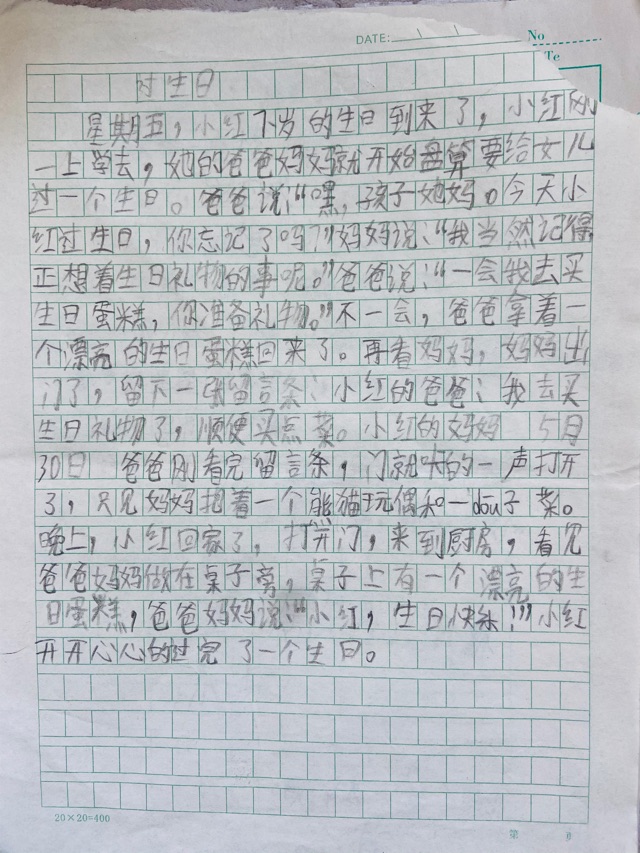 DATE:
No
Te
过生日
星期五，小红7岁的生日到来了，小红刚
一上学去，她的爸爸妈妈就开始盘算要给女儿
过一个生日。爸爸说：“嘿，孩子她妈。今天小
红过生日，你忘记了吗？”妈妈说：“我当然记得，
正想着生日礼物的事呢。”爸爸说：“一会我去买
生日蛋糕，你准备礼物。”不一会，爸爸拿着一
个漂亮的生日蛋糕回来了。再看妈妈，妈妈出
门了，留下一张留言条：小红的爸爸：我去买
生日礼物了，顺便买点菜。小红的妈妈 5月
30日 爸爸刚看完留言条，门就咔的一声打开
了，只见妈妈抱着一个熊猫玩偶和一dōu子菜。
晚上，小红回家了，打开门，来到厨房，看见
爸爸妈妈做在桌子旁，桌子上有一个漂亮的生
日蛋糕，爸爸妈妈说：“小红，生日快乐！”小红
开开心心的过完了一个生日。
20×20=400
第 页